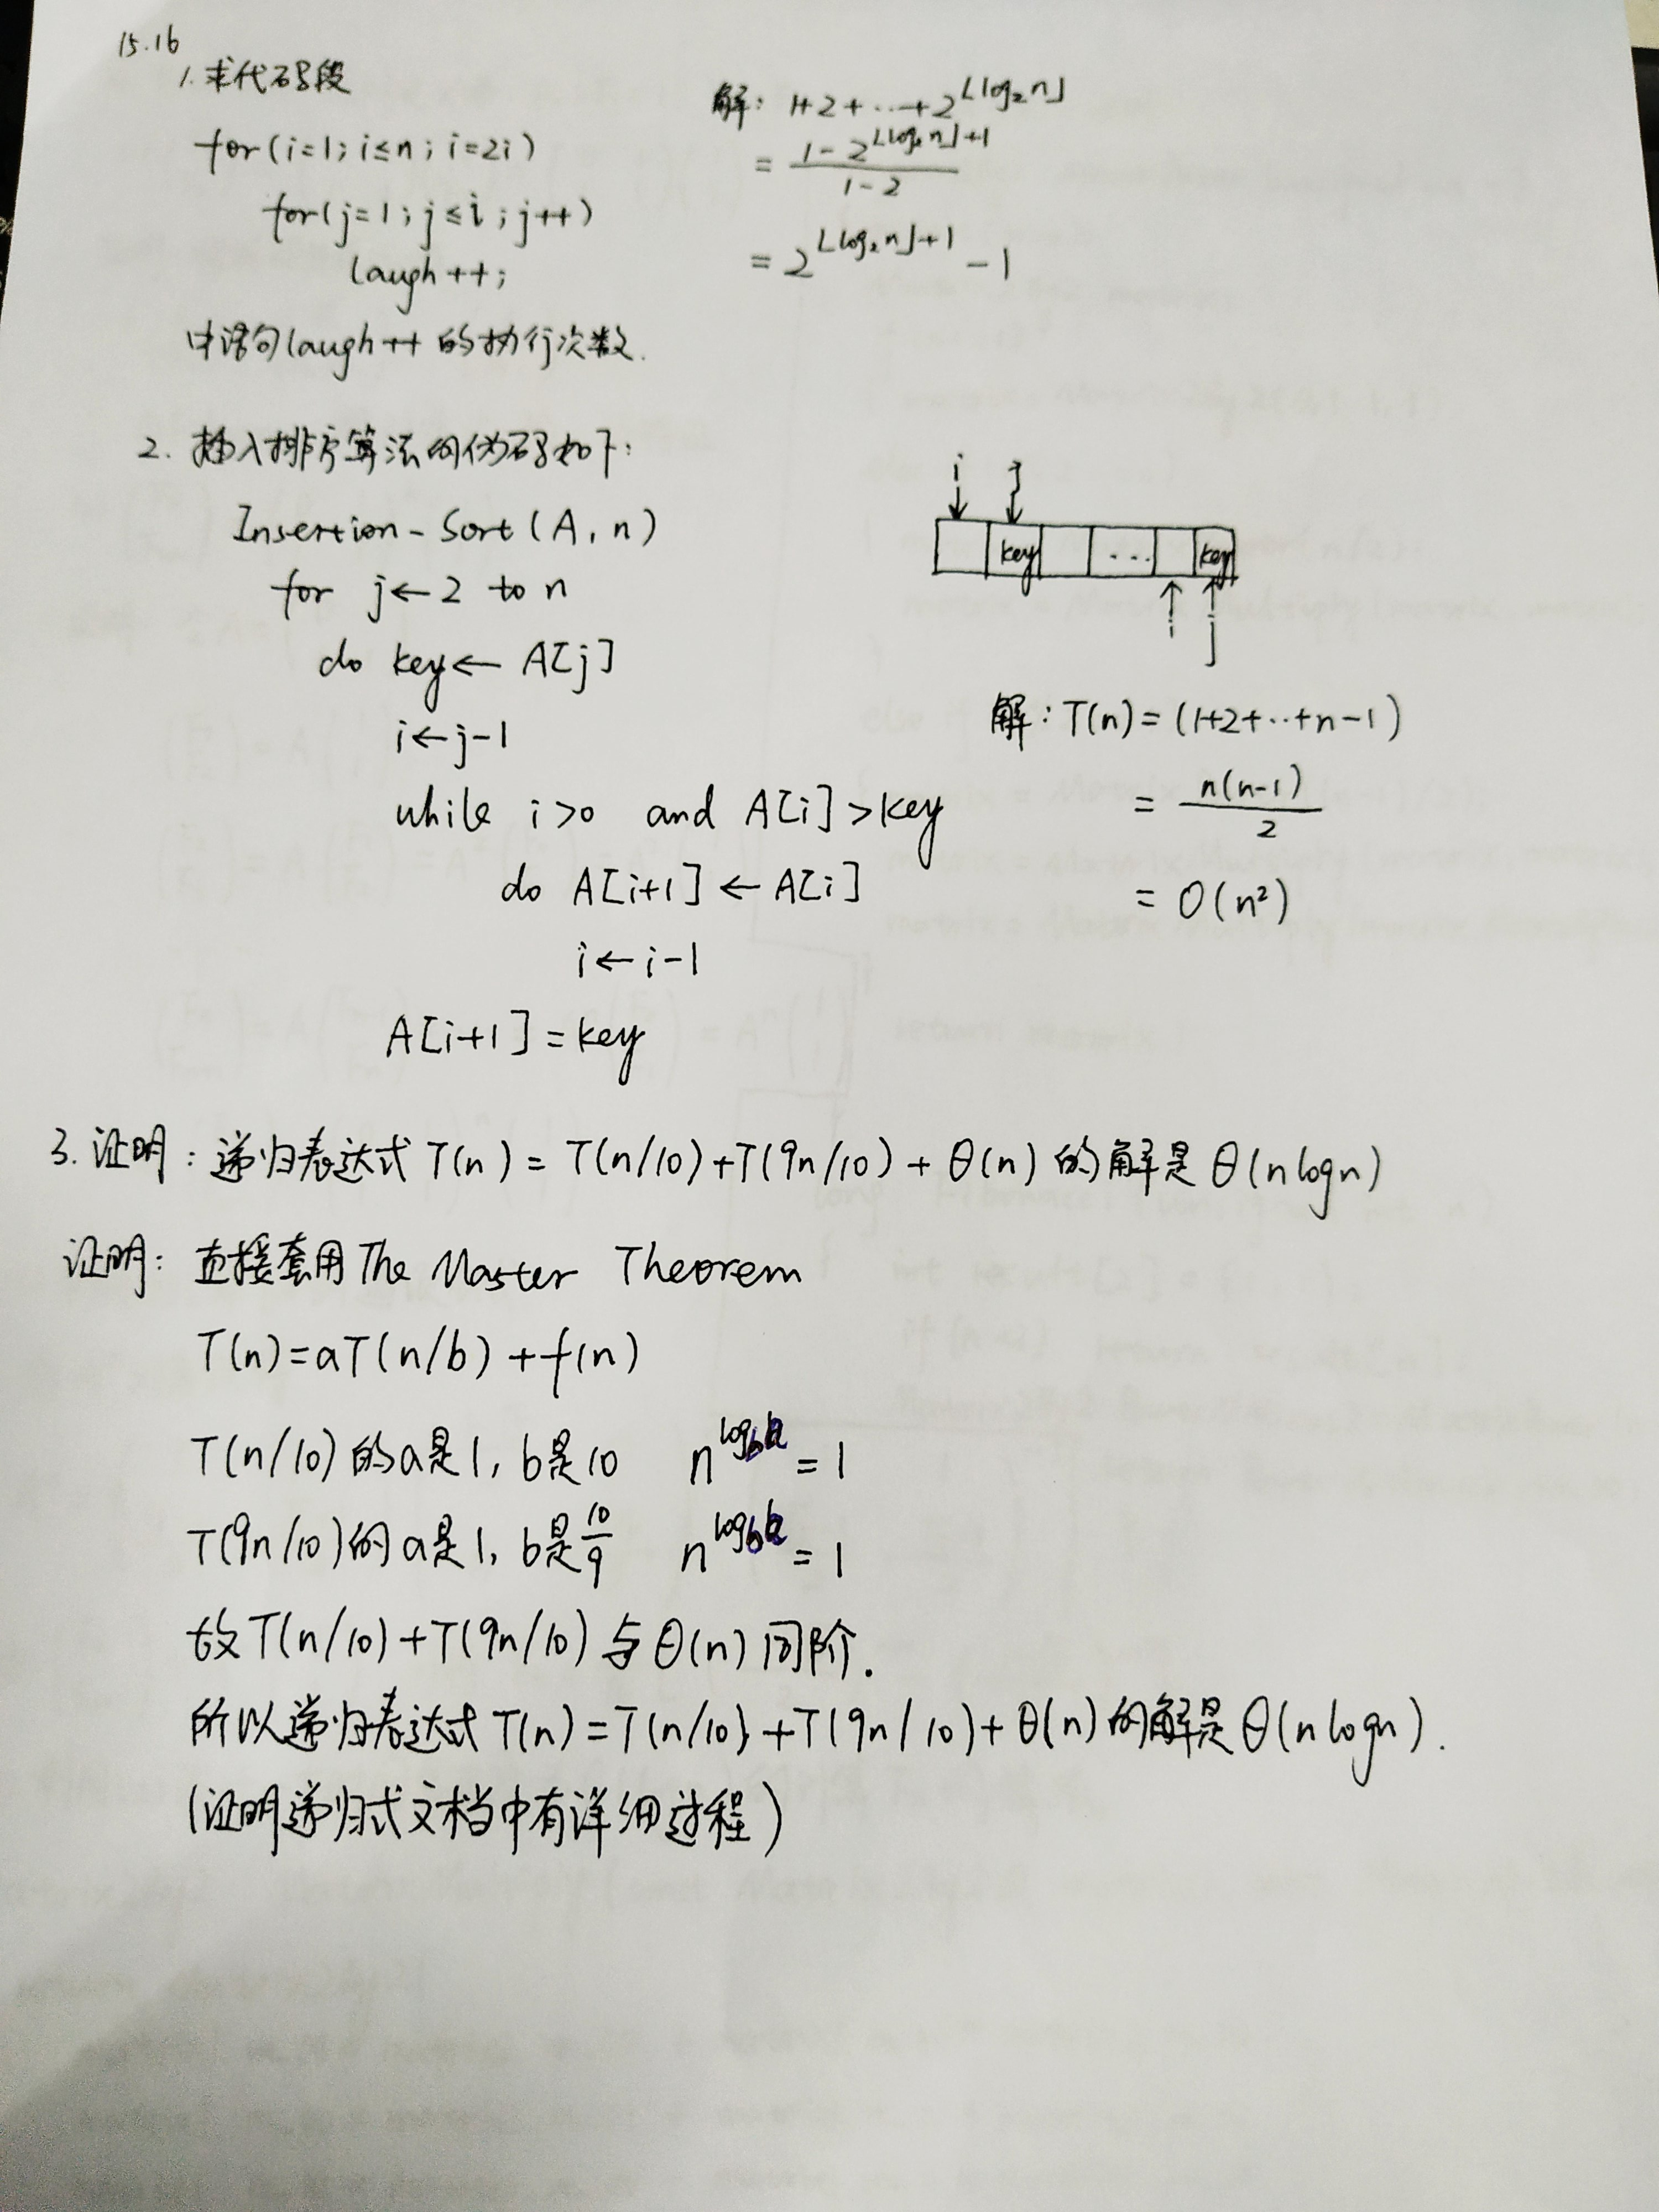 15.16
1. 求代码段
for(i=1; i≤n; i=2i)
for(j=1; j≤i; j++)
laugh++;
中语句laugh++的执行次数.
解: 1+2+...+2^{⌊log₂n⌋}
= \frac{1-2^{⌊log₂n⌋+1}}{1-2}
= 2^{⌊log₂n⌋+1} - 1
2. 插入排序算法的伪码如下:
Insertion-Sort(A, n)
for j←2 to n
do key←A[j]
i←j-1
while i>0 and A[i]>key
do A[i+1]←A[i]
i←i-1
A[i+1]=key
i j
key ... key
i j
解: T(n)=(1+2+...+n-1)
= \frac{n(n-1)}{2}
= O(n²)
3. 证明: 递归表达式 T(n) = T(n/10)+T(9n/10)+θ(n) 的解是 θ(nlogn)
证明: 直接套用 The Master Theorem
T(n)=aT(n/b)+f(n)
T(n/10)的a是1, b是10 n^{log_b a} = 1
T(9n/10)的a是1, b是\frac{10}{9} n^{log_b a} = 1
故T(n/10)+T(9n/10)与θ(n)同阶.
所以递归表达式T(n)=T(n/10)+T(9n/10)+θ(n)的解是θ(nlogn).
(证明递归式文档中有详细过程)